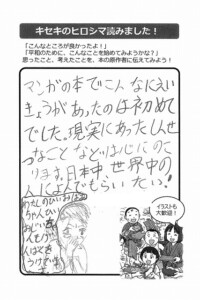 キセキのヒロシマ読みました！
「こんなところが良かったよ！」
「平和のために、こんなことを始めてみようかな？」
思ったこと、考えたことを、本の原作者に伝えてみよう！
マンガの本でこんなにえい
きょうがあったのは初めて
でした。現実にあったしんせ
つなことなどは心にのこ
ります。日本中、世界中の
人によんでもらいたい！
わたしのひいおじい
ちゃん
イラストも
大歓迎！